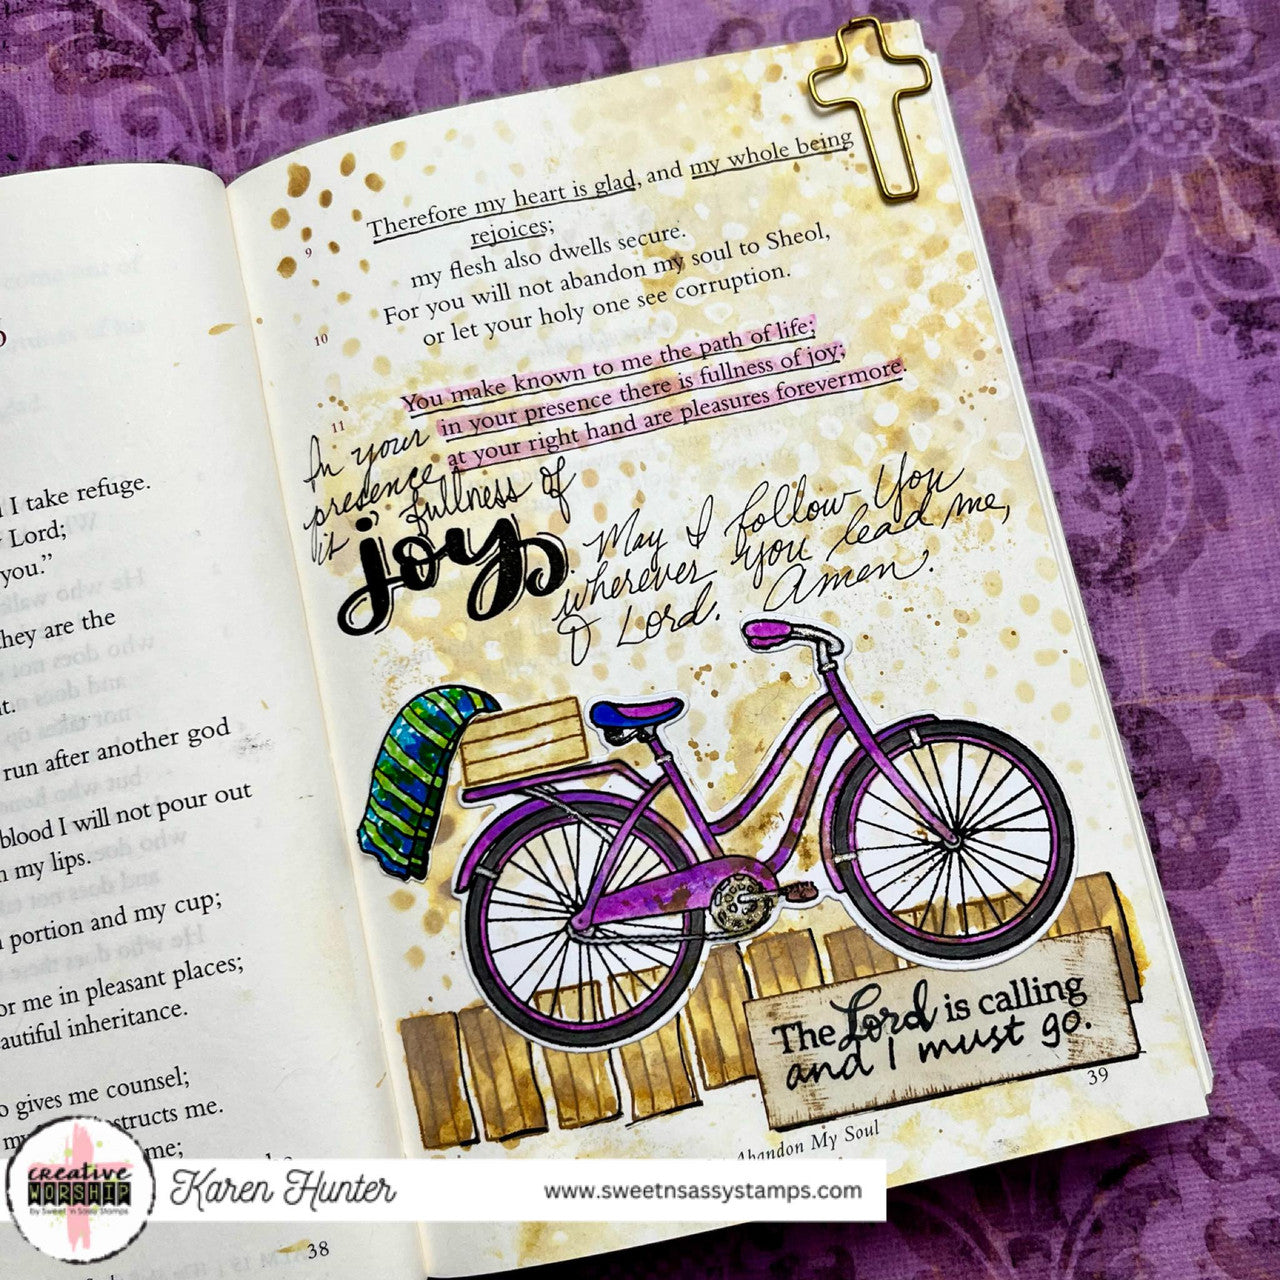 I take refuge.
Lord;
you."
they are the
t.
run after another god
blood I will not pour out
my lips.
portion and my cup;
or me in pleasant places;
autiful inheritance.
o gives me counsel;
structs me.
me;
38
Therefore my heart is glad, and my whole being
rejoices;
9
my flesh also dwells secure.
For you will not abandon my soul to Sheol,
10
or let your holy one see corruption.
You make known to me the path of life;
11
in your presence there is fullness of joy;
at your right hand are pleasures forevermore.
In your
presence,
it fullness of
joy
May I follow You
wherever you lead me,
O Lord. Amen.
The Lord is calling
and I must go.
39
Abandon My Soul
creative
WORSHIP
by Sweet 'n Sassy Stamps
Karen Hunter
www.sweetnsassystamps.com